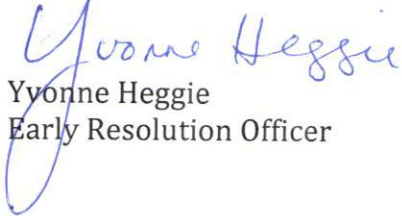 Yvonne Heggie
Yvonne Heggie
Early Resolution Officer